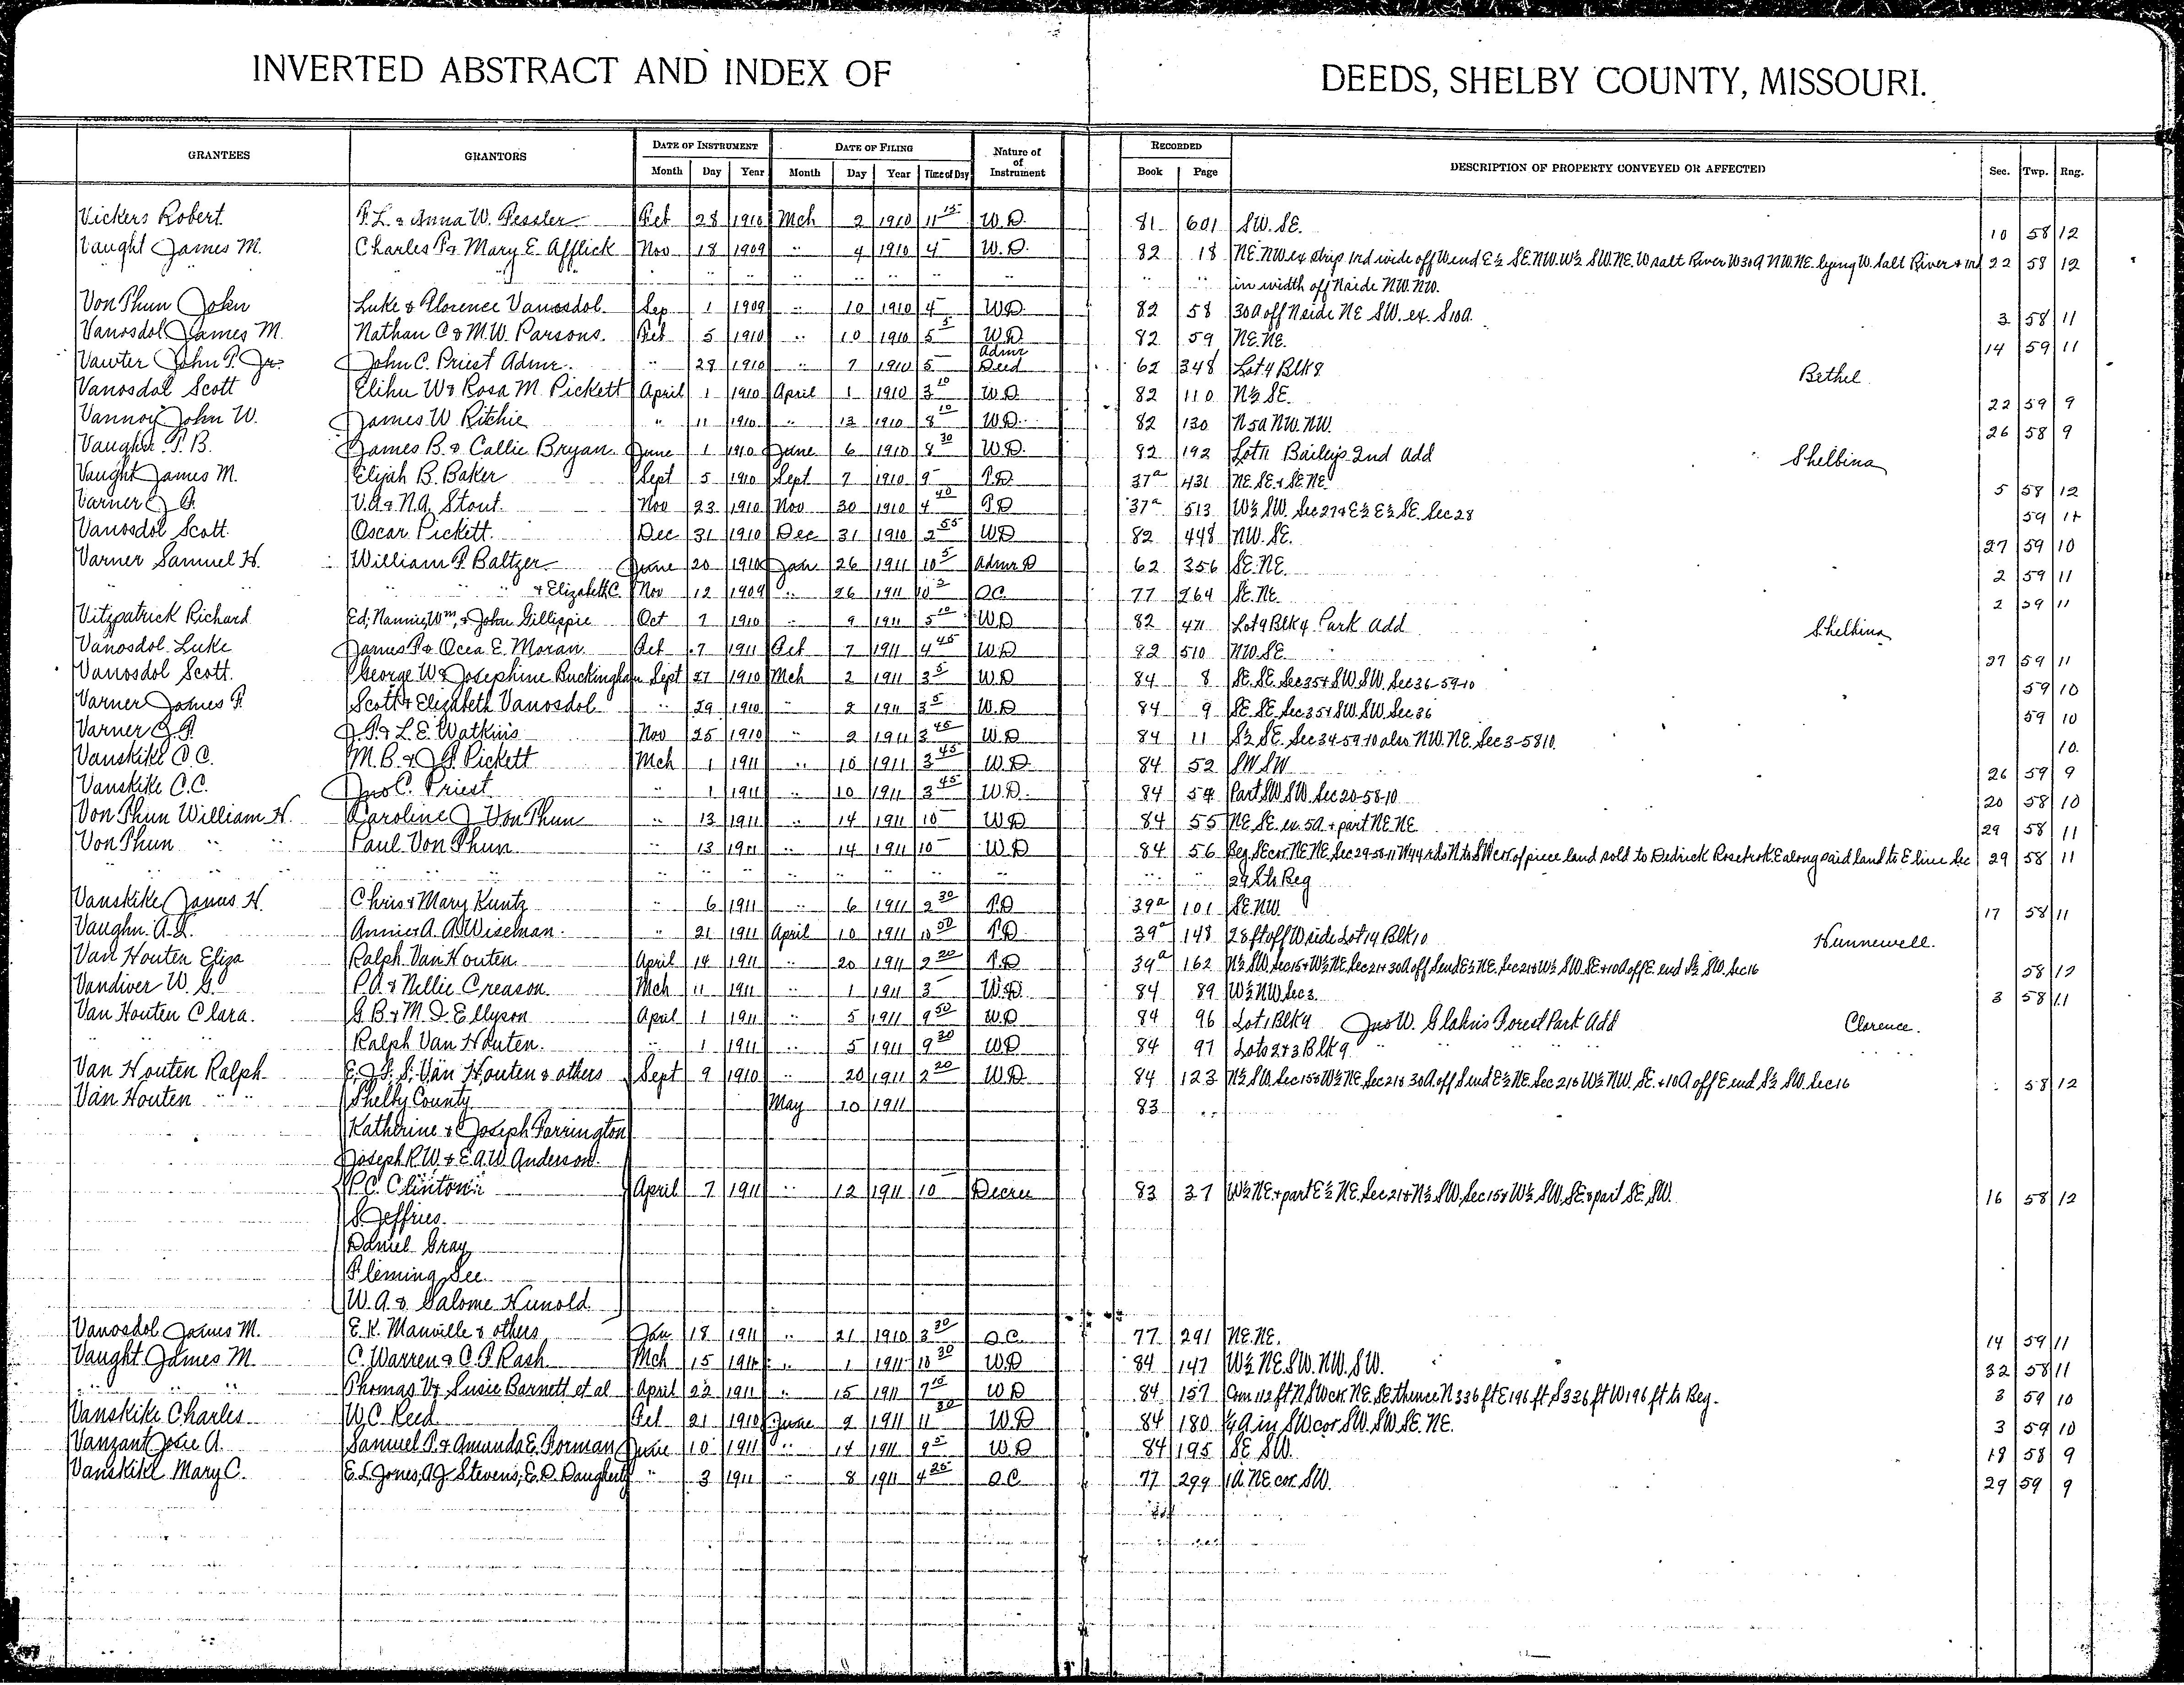 INVERTED ABSTRACT AND INDEX OF DEEDS, SHELBY COUNTY, MISSOURI.
GRANTEES GRANTORS DATE OF INSTRUMENT DATE OF FILING Nature of of Instrument RECORDED DESCRIPTION OF PROPERTY CONVEYED OR AFFECTED Sec. Twp. Rng.
Month Day Year Month Day Year Time of Day Book Page
Vickers Robert F. L. & Anna W. Fessler Feb 28 1910 Mch 2 1910 11 15 W.D. 81 601 SW. SE. 10 58 12
Vaught James M. Charles P. & Mary E. Afflick Nov 18 1909 " 4 1910 4 W.D. 82 18 NE. NW ex strip 1rd wide off W end E½ SE. NW. W½ SW. NE. W salt River W 30 A NW. NE. lying W. Salt River & 1rd 22 58 12
" " " " " " " " " in width off N side NW. NW.
Von Thun John Luke & Florence Vanosdol Sep 1 1909 " 10 1910 4 WD 82 58 30A off N side NE SW. ex. S10A 3 58 11
Vanosdol James M. Nathan C & M.W. Parsons. Feb 5 1910 " 10 1910 5 5 W.D 82 59 NE. NE. 14 59 11
Vawter John P. Jr. John C. Priest Admr. " 28 1910 " 7 1910 5 Admr Deed 62 348 Lot 4 Blk 8 Bethel
Vanosdol Scott Elihu W & Rosa M. Pickett April 1 1910 April 1 1910 3 10 W.D 82 110 N½ SE. 22 59 9
Vannoy John W. James W Ritchie " 11 1910 " 13 1910 8 10 W.D. 82 130 N 5A NW. NW. 26 58 9
Vaugher. P. B. James B. & Callie Bryan June 1 1910 June 6 1910 8 30 W.D. 82 192 Lot 11 Baileys 2nd Add Shelbina
Vaught James M. Elijah B. Baker Sept 5 1910 Sept 7 1910 9 T.D 37a 431 NE. SE. & SE. NE. 5 58 12
Varner J. F. V.A. & N.A. Stout Nov 23 1910 Nov 30 1910 4 40 T.D 37a 513 W½ SW. Sec 27 & E½ E½ SE. Sec 28 59 11
Vanosdol Scott. Oscar Pickett. Dec 31 1910 Dec 31 1910 2 55 WD 82 448 NW. SE. 27 59 10
Varner Samuel H. William F. Baltzer June 20 1910 Jan 26 1911 10 5 Admr D 62 356 SE. NE. 2 59 11
" " & Elizabeth C. Nov 12 1909 " 26 1911 10 5 Q.C. 77 264 SE. NE. 2 59 11
Vitzpatrick Richard Ed, Nannie, Wm, & John Gillispie Oct 7 1910 " 9 1911 5 10 WD 82 471 Lot 9 Blk 4 Park Add Shelbina
Vanosdol Luke James P. & Ocea E. Moran Feb 7 1911 Feb 7 1911 4 45 W.D 82 510 NW. SE. 27 59 11
Vanosdol Scott. George W & Josephine Buckingham Sept 27 1910 Mch 2 1911 3 5 W.D 84 8 SE. SE. Sec 35 & SW SW. Sec 36-59-10 59 10
Varner James F. Scott & Elizabeth Vanosdol " 29 1910 " 2 1911 3 5 W.D 84 9 SE. SE. Sec 35 & SW. SW. Sec 36 59 10
Varner J. F. J. P. & L. E. Watkins Nov 25 1910 " 2 1911 3 45 W.D 84 11 S½ SE. Sec 34-59-10 also NW. NE. Sec 3-58 10. 10.
Vanskike C.C. M. B. & J. G. Pickett Mch 1 1911 " 10 1911 3 45 W.D. 84 52 SW SW 26 59 9
Vanskike C.C. Jno C. Priest " 1 1911 " 10 1911 3 45 W.D. 84 54 Part SW SW. Sec 20-58-10 20 58 10
Von Thun William H. Caroline J Von Thun " 13 1911 " 14 1911 10 W.D 84 55 NE. SE. ex. 5A. & part NE. NE 29 58 11
Von Thun " " Paul Von Thun " 13 1911 " 14 1911 10 W.D 84 56 Beg. SE cor. NE NE. Sec 29-58-11 W 44 rds N to SW cor. of piece land sold to Dedrick Rosetrok E along said land to E line Sec 29 58 11
" " " " " " " " 29 S to Beg
Vanskike James H. Chris & Mary Kuntz " 6 1911 " 6 1911 2 30 T.D 39a 101 SE. NW. 17 58 11
Vaughn. A. L. Annie & A. A. Wiseman " 21 1911 April 10 1911 10 50 T.D. 39a 148 28 ft off W side Lot 14 Blk 10 Hunnewell.
Van Houten Eliza Ralph Van Houten April 14 1911 " 20 1911 2 20 T.D 39a 162 N½ SW. Sec 15 & W½ NE. Sec 21 & 30A off S end E½ NE. Sec 21 & W½ SW. SE. & 10A off E. end S½ SW. Sec 16 58 12
Vandiver W. G. P.A. & Nellie Creason Mch 11 1911 " 1 1911 3 W.D. 84 89 W½ NW Sec 3. 3 58 11
Van Houten Clara. G. B. & M. D. Ellyson April 1 1911 " 5 1911 9 30 W.D 84 96 Lot 1 Blk 9 Jno W. Glahn's Forest Park Add Clarence.
" " Ralph Van Houten. " 1 1911 " 5 1911 9 30 WD 84 97 Lots 2 & 3 Blk 9 " " "
Van Houten Ralph E. J. F. S. Van Houten & others Sept 9 1910 " 20 1911 2 20 W.D. 84 123 N½ SW. Sec 15 & W½ NE. Sec 21 & 30A off S end E½ NE. Sec 21 & W½ NW. SE. & 10A off E end S½ SW. Sec 16 58 12
Van Houten " " Shelby County May 10 1911 83 "
Katherine & Joseph Farrington
Joseph R. W. & E.A.W. Anderson
P.C. Clinton April 7 1911 " 12 1911 10 Decree 83 37 W½ NE. & part E½ NE. Sec 21 & N½ SW. Sec 15 & W½ SW. SE. & part SE. SW. 16 58 12
S. Jeffries
Daniel Gray
Fleming See
W. A. & Salome Hunold
Vanosdol James M. E. K. Manville & others Jan 18 1911 " 21 1910 3 30 Q.C. 77 291 NE. NE. 14 59 11
Vaught James M. C. Warren & C. F. Rash Mch 15 1911 " 1 1911 10 30 W.D 84 147 W½ NE. SW. NW. SW. 32 58 11
" " Thomas V. & Susie Barnett et al April 22 1911 " 15 1911 7 15 W.D 84 157 Com 112 ft N SW cor. NE. SE. thence N 336 ft E 196 ft S 336 ft W 196 ft to Beg. 3 59 10
Vanskike Charles W. C. Reed Feb 21 1910 June 9 1911 11 30 W.D 84 180 ¼ A in SW cor SW. SW. SE. NE. 3 59 10
Vanzant Josie A. Samuel P. & Amanda E. Forman June 10 1911 " 14 1911 9 5 W.D 84 195 SE SW. 19 58 9
Vanskike Mary C. E. L. Jones, A. J. Stevens, E. D. Daugherty " 3 1911 " 8 1911 4 25 Q.C. 77 299 1 A. NE cor. SW. 29 59 9